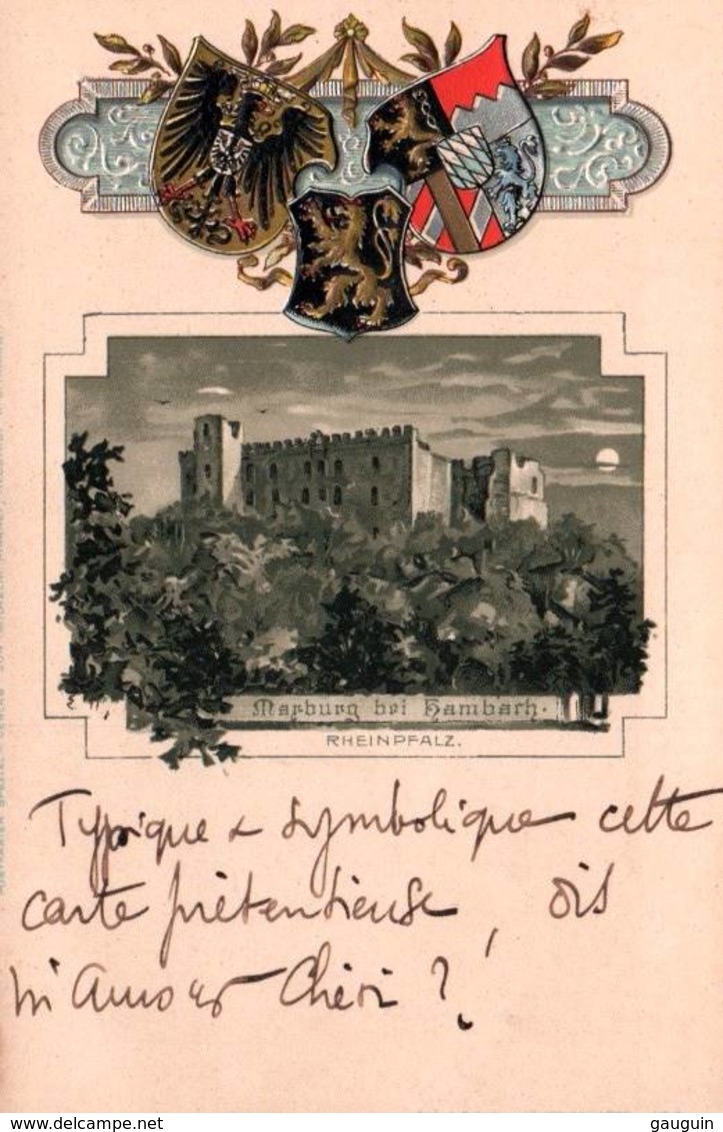 Marburg bei Hambach.
RHEINPFALZ.
Typique & symbolique cette
carte prétentieuse, dis
m'amour Chéri ?
delcampe.net
gauguin